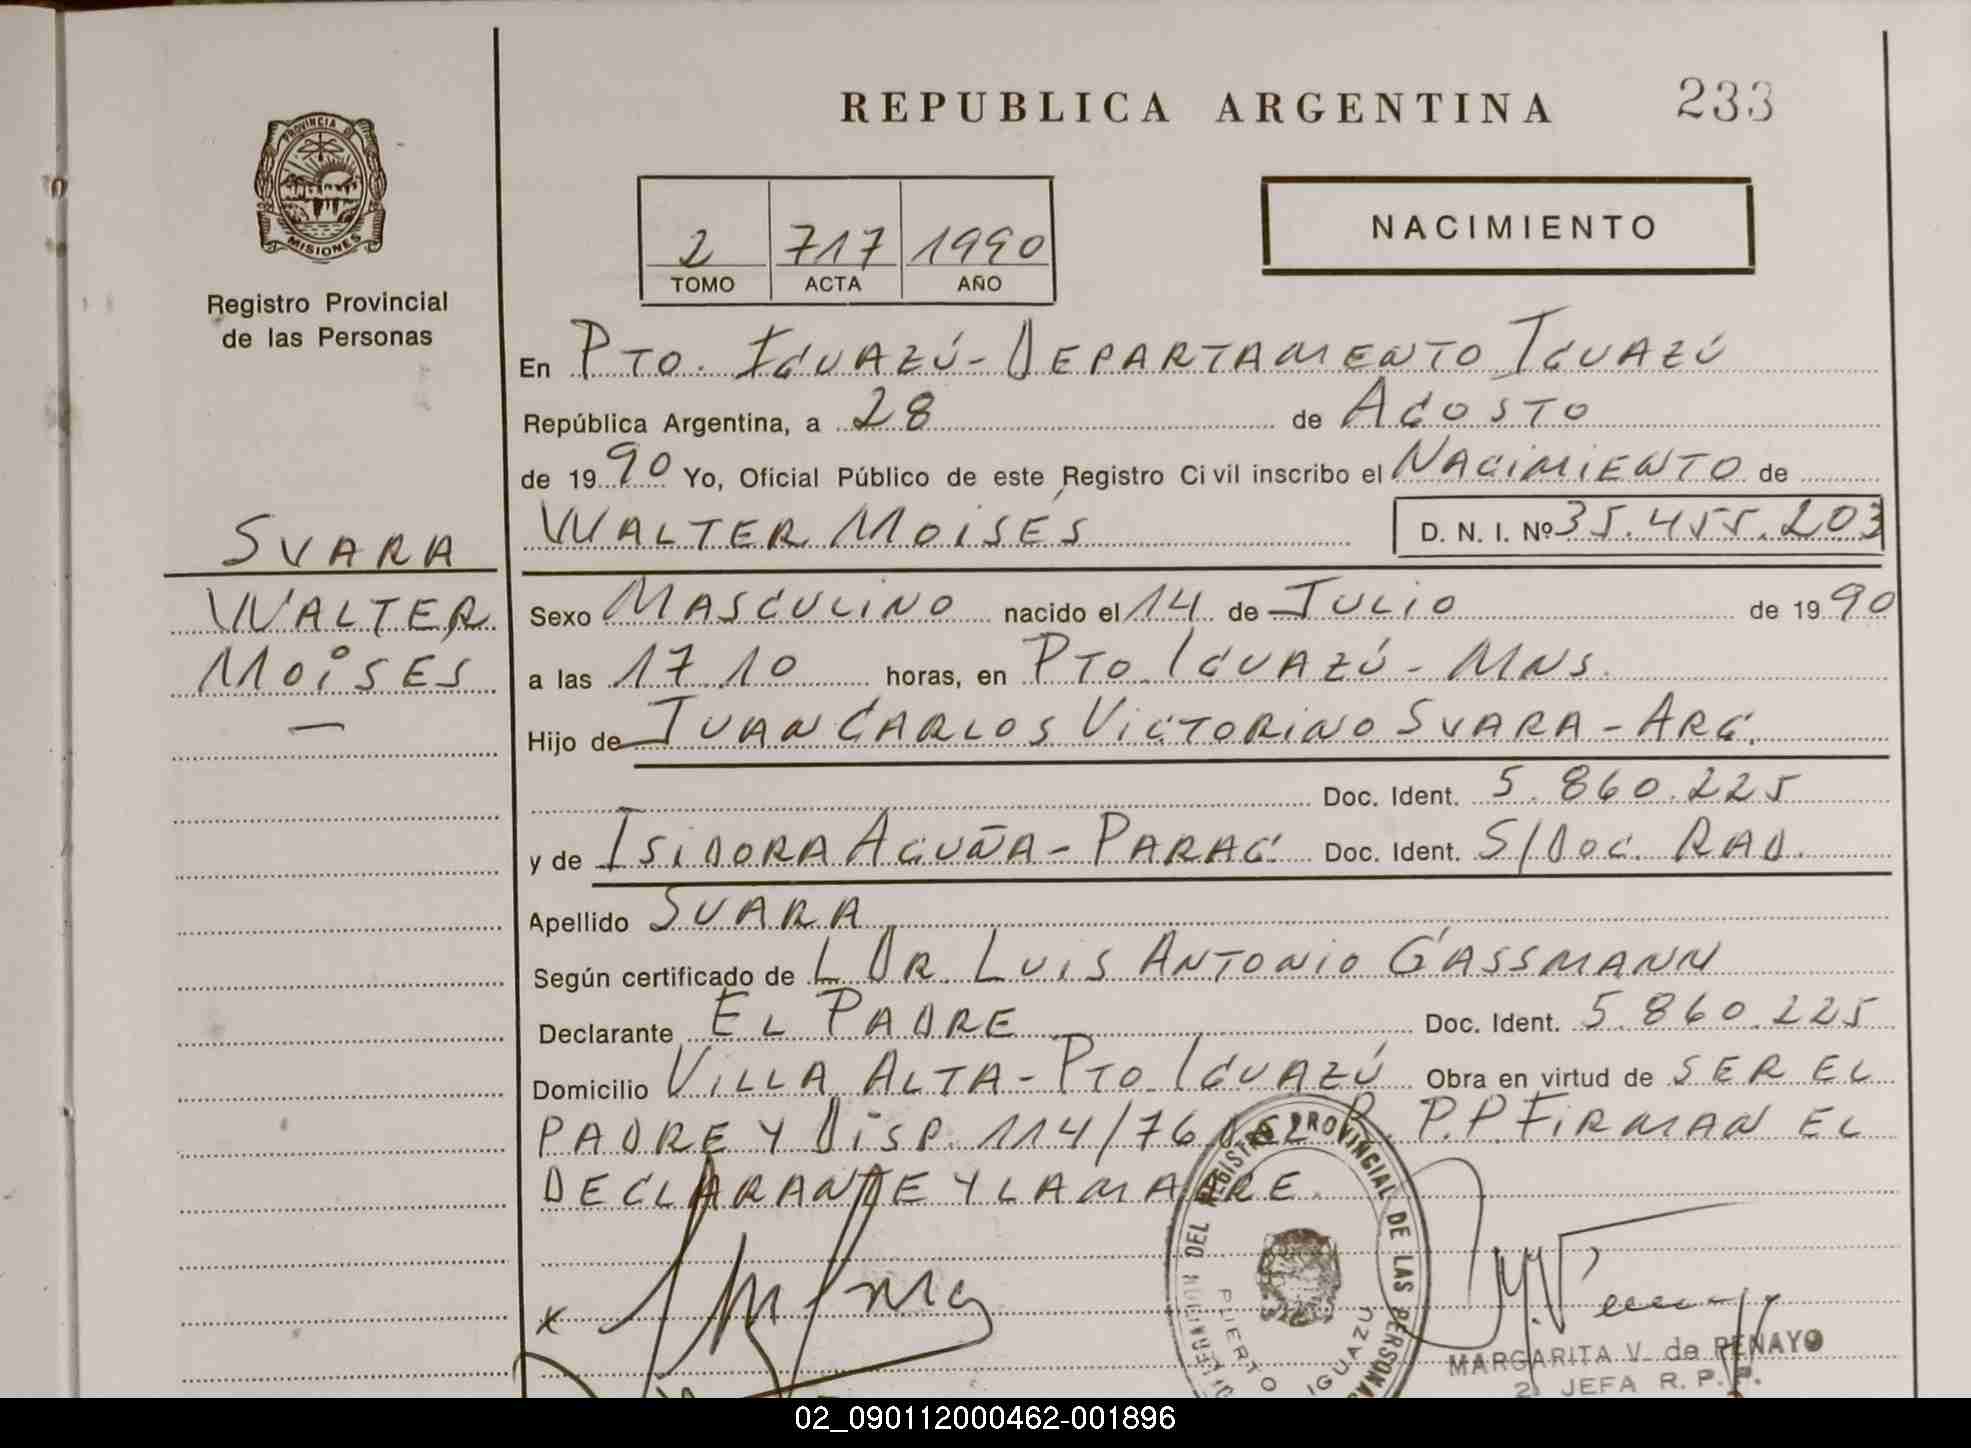 REPUBLICA ARGENTINA 233
PROVINCIA DE
MISIONES
Registro Provincial
de las Personas
2 717 1990
TOMO ACTA AÑO
NACIMIENTO
En PTO. IGUAZÚ - DEPARTAMENTO IGUAZÚ
República Argentina, a 28 de AGOSTO
de 1990 Yo, Oficial Público de este Registro Civil inscribo el NACIMIENTO de
WALTER MOISÉS D. N. I. Nº 35.455.203
SVARA
WALTER
MOISES
Sexo MASCULINO nacido el 14 de JULIO de 1990
a las 17.10 horas, en PTO. IGUAZÚ - MNS.
Hijo de JUAN CARLOS VICTORINO SVARA - ARG.
Doc. Ident. 5.860.225
y de ISIDORA ACUÑA - PARAG. Doc. Ident. S/DOC. RAD.
Apellido SVARA
Según certificado de L DR. LUIS ANTONIO GASSMANN
Declarante EL PADRE Doc. Ident. 5.860.225
Domicilio VILLA ALTA - PTO. IGUAZÚ Obra en virtud de SER EL
PADRE Y DISP. 114/76 DEL R. P.P. FIRMAN EL
DECLARANTE Y LA MADRE.
DEL REGISTRO PROVINCIAL DE LAS PERSONAS
PUERTO IGUAZU
x
MARGARITA V. de PENAYO
2 JEFA R. P. P.
02_090112000462-001896